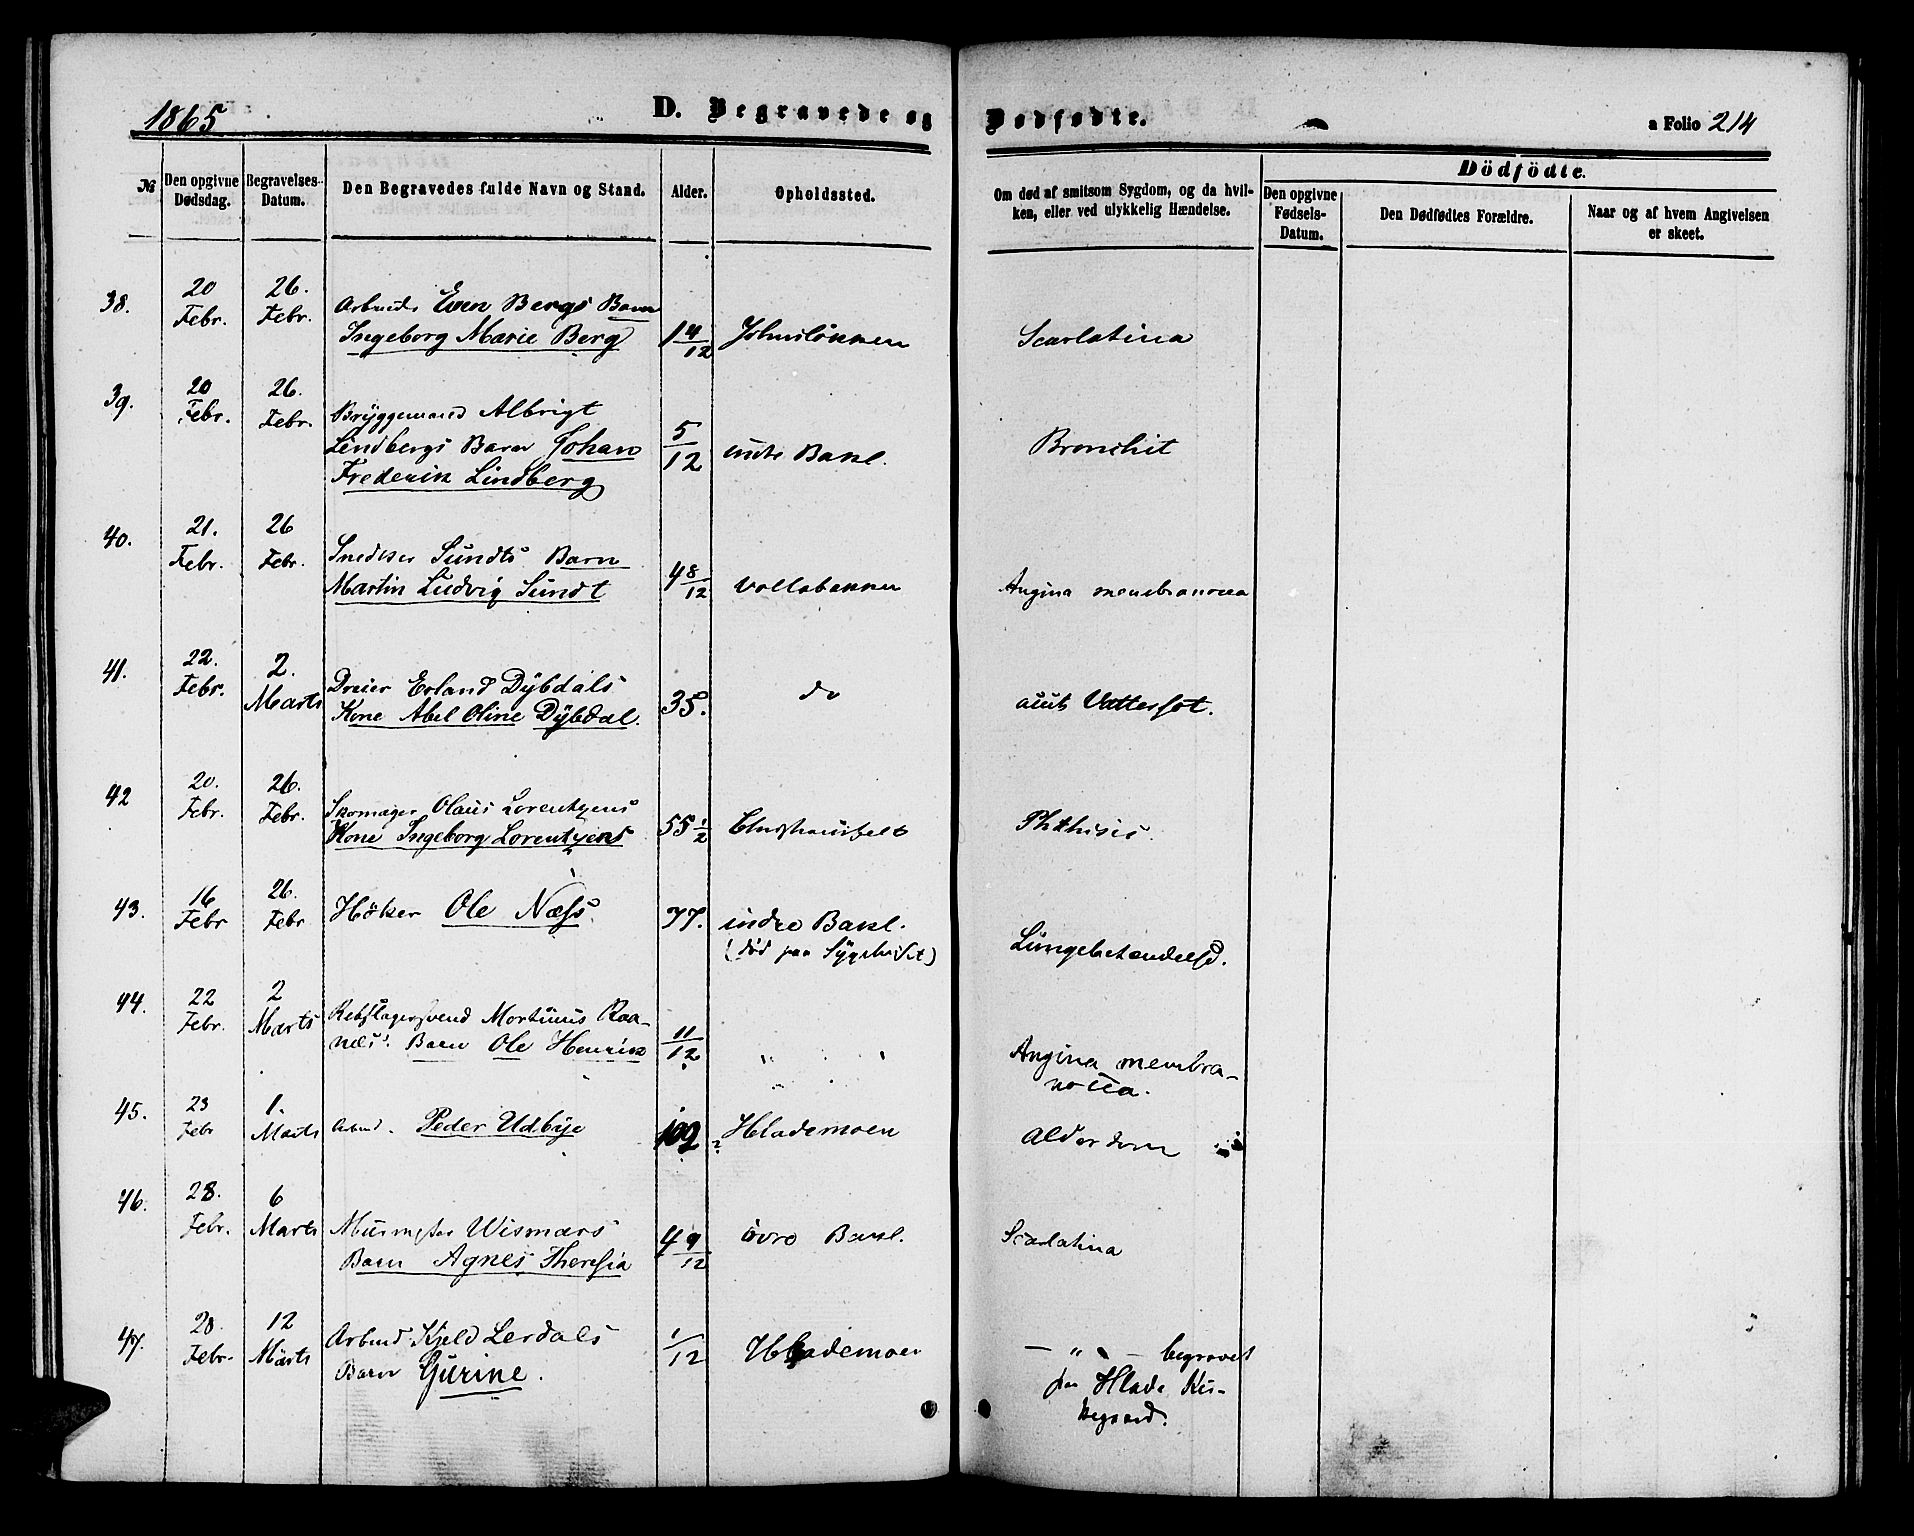 1865
D. Begravede og Dødfødte.
a Folio 214
№
Den opgivne Dødsdag.
Begravelses-Datum.
Den Begravedes fulde Navn og Stand.
Alder.
Opholdssted.
Om død af smitsom Sygdom, og da hvilken, eller ved ulykkelig Hændelse.
Dödfödte.
Den opgivne Fødsels-Datum.
Den Dødfødtes Forældre.
Naar og af hvem Angivelsen er skeet.
38. 20 Febr. 26. Febr. Arbeids Even Bergs Barn
Ingeborg Marie Berg 1 4/12 Scarlatina
39. 20 Febr. 26. Febr. Bryggemand Albrigt
Lindbergs Barn Johan 5/12 Bakl. Bronchit
Frederik Lindberg
40. 21. Febr. 26 Febr. Snedker Sundts Barn
Martin Ludvig Sundt 4 8/12 Vollabakken Angina membranacea
41. 22. Febr. 2. Marts Dreier Erland Dÿbdals
Kone Abel Oline Dÿbdal. 35. do Vattersot.
42 20. Febr. 26. Febr. Skomager Olaus Lorentzens
Kone Ingeborg Lorentzens 55 1/2 Phthisis.
43. 16 Febr 26. Febr Höker Ole Næss. 77. indre Bakl.
(död paa Sygehuset) Lungebetændelse.
44. 22 Febr. 2 Marts Rebslagersvend Mortinus Raa-
næs' Barn Ole Henrik 11/12 " " Angina membra-
nacea.
45. 23 Febr 1. Marts Arbeid. Peder Udbÿe 102 ? Hlademoen Alderdom
46. 28. Febr. 6 Marts Wismars
Barn Agnes Theresia 4 9/12 övre Bakl. Scarlatina
47. 28. Febr. 12 Marts Arbeid Kjeld Lerdals
Barn Gurine. 1/12 Hlademoen — " — begravet
paa Hlade Kir-
kegaard.